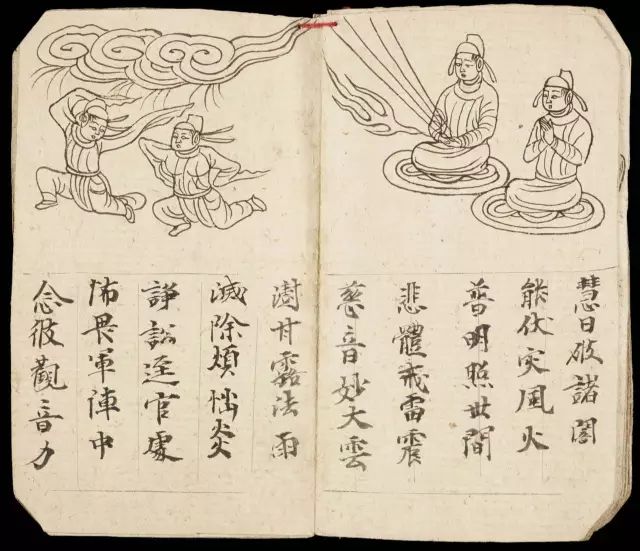 慧日破諸闇
能伏灾風火
普明照世間
悲體戒雷震
慈音妙大雲
澍甘露法雨
滅除煩惱炎
諍訟逕官處
怖畏軍陣中
念彼觀音力